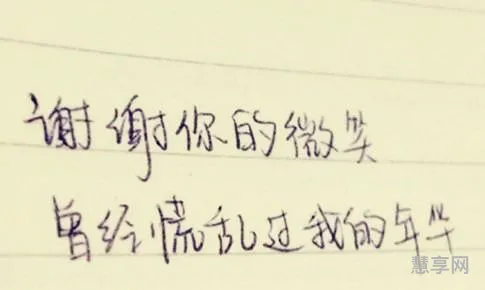 谢谢你的微笑
曾经慌乱过我的年华
慧享网